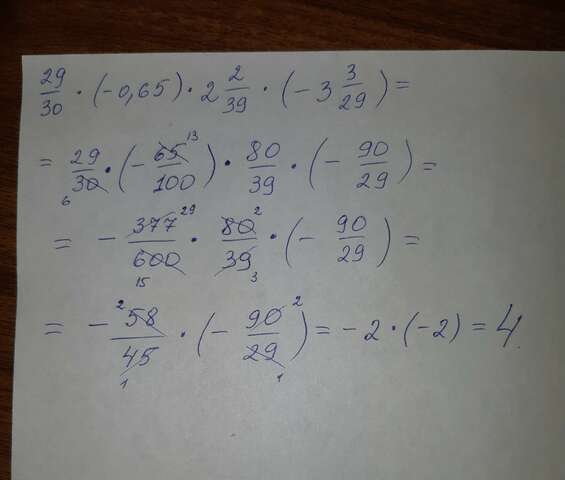 29/30 · (-0,65) · 2 2/39 · (-3 3/29) =
= 29/30 6 · (- 65 13/100) · 80/39 · (- 90/29) =
= - 377 29/600 15 · 80 2/39 3 · (- 90/29) =
= - 2 58/45 1 · (- 90 2/29 1) = -2 · (-2) = 4